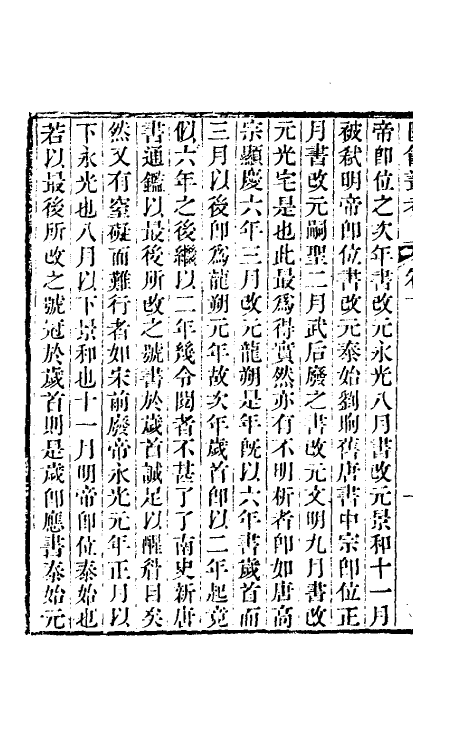 帝卽位之次年書改元永光八月書改元景和十一月
被弑明帝卽位書改元泰始劉昫舊唐書中宗卽位正
月書改元嗣聖二月武后廢之書改元文明九月書改
元光宅是也此最爲得實然亦有不明析者卽如唐高
宗顯慶六年三月改元龍朔是年旣以六年書歲首而
三月以後卽爲龍朔元年故次年歲首卽以二年起竟
似六年之後繼以二年幾令閱者不甚了了南史新唐
書通鑑以最後所改之號書於歲首誠足以醒眉目矣
然又有窒礙而難行者如宋前廢帝永光元年正月以
下永光也八月以下景和也十一月明帝卽位泰始也
若以最後所改之號冠於歲首則是歲卽應書泰始元